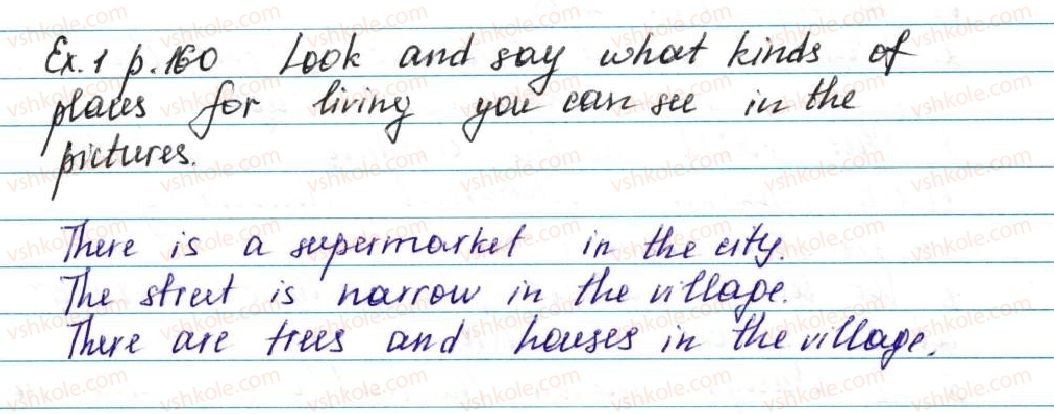 Ex. 1 p. 160 Look and say what kinds of
places for living you can see in the
pictures.
There is a supermarket in the city.
The street is narrow in the village.
There are trees and houses in the village.